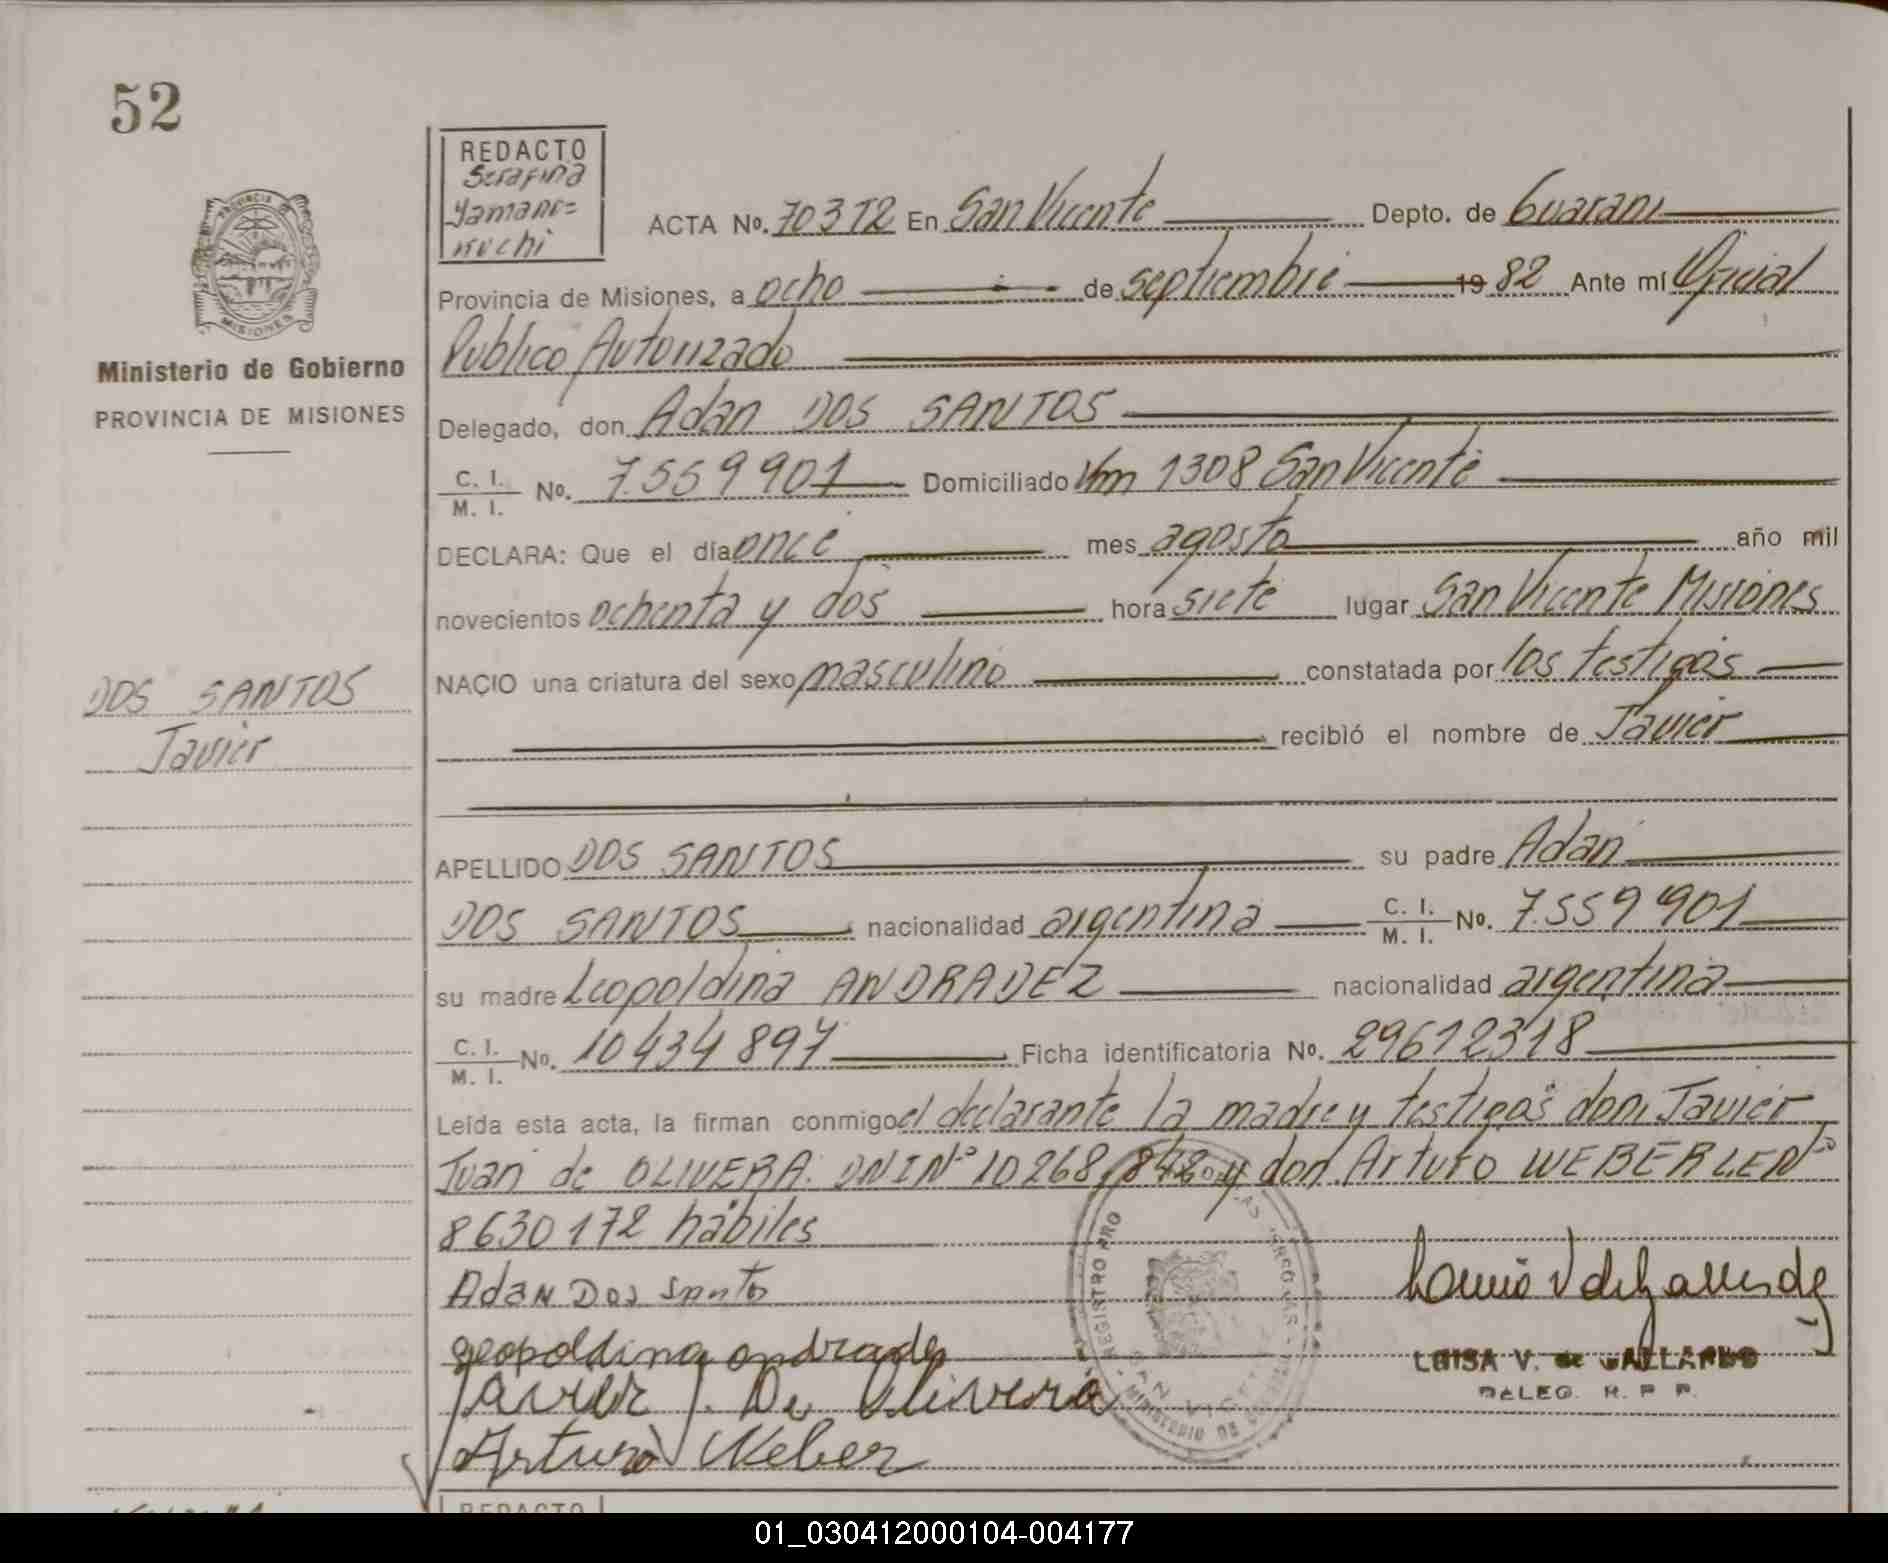 52
REDACTO
Serafina
Yamane=
kuchi
PROVINCIA DE
MISIONES
Ministerio de Gobierno
PROVINCIA DE MISIONES
ACTA No. 70372 En San Vicente Depto. de Guarani
Provincia de Misiones, a ocho de septiembre 19 82 Ante mí Oficial
Publico Autorizado
Delegado, don Adan DOS SANTOS
C. I. / M. I. No. 7.559 901 Domiciliado Km 1308 San Vicente
DECLARA: Que el día once mes agosto año mil
novecientos ochenta y dos hora siete lugar San Vicente Misiones
NACIO una criatura del sexo masculino constatada por los testigos
DOS SANTOS
Javier
recibió el nombre de Javier
APELLIDO DOS SANTOS su padre Adan
DOS SANTOS nacionalidad argentina C. I. / M. I. No. 7.559 901
su madre Leopoldina ANDRADEZ nacionalidad argentina
C. I. / M. I. No. 10434 897 Ficha identificatoria No. 29612318
Leída esta acta, la firman conmigo el declarante la madre y testigos don Javier
Juan de OLIVERA DNI Nº 10268,842 y don Arturo WEBER LE Nº
8630172 hábiles
Adan Dos Santos
leopoldina andradez
Javier J. De Olivera
Arturo Weber
LUISA V. de GALLARDO
DELEG. R. P. P.
SAN VICENTE
REDACTO
01_030412000104-004177